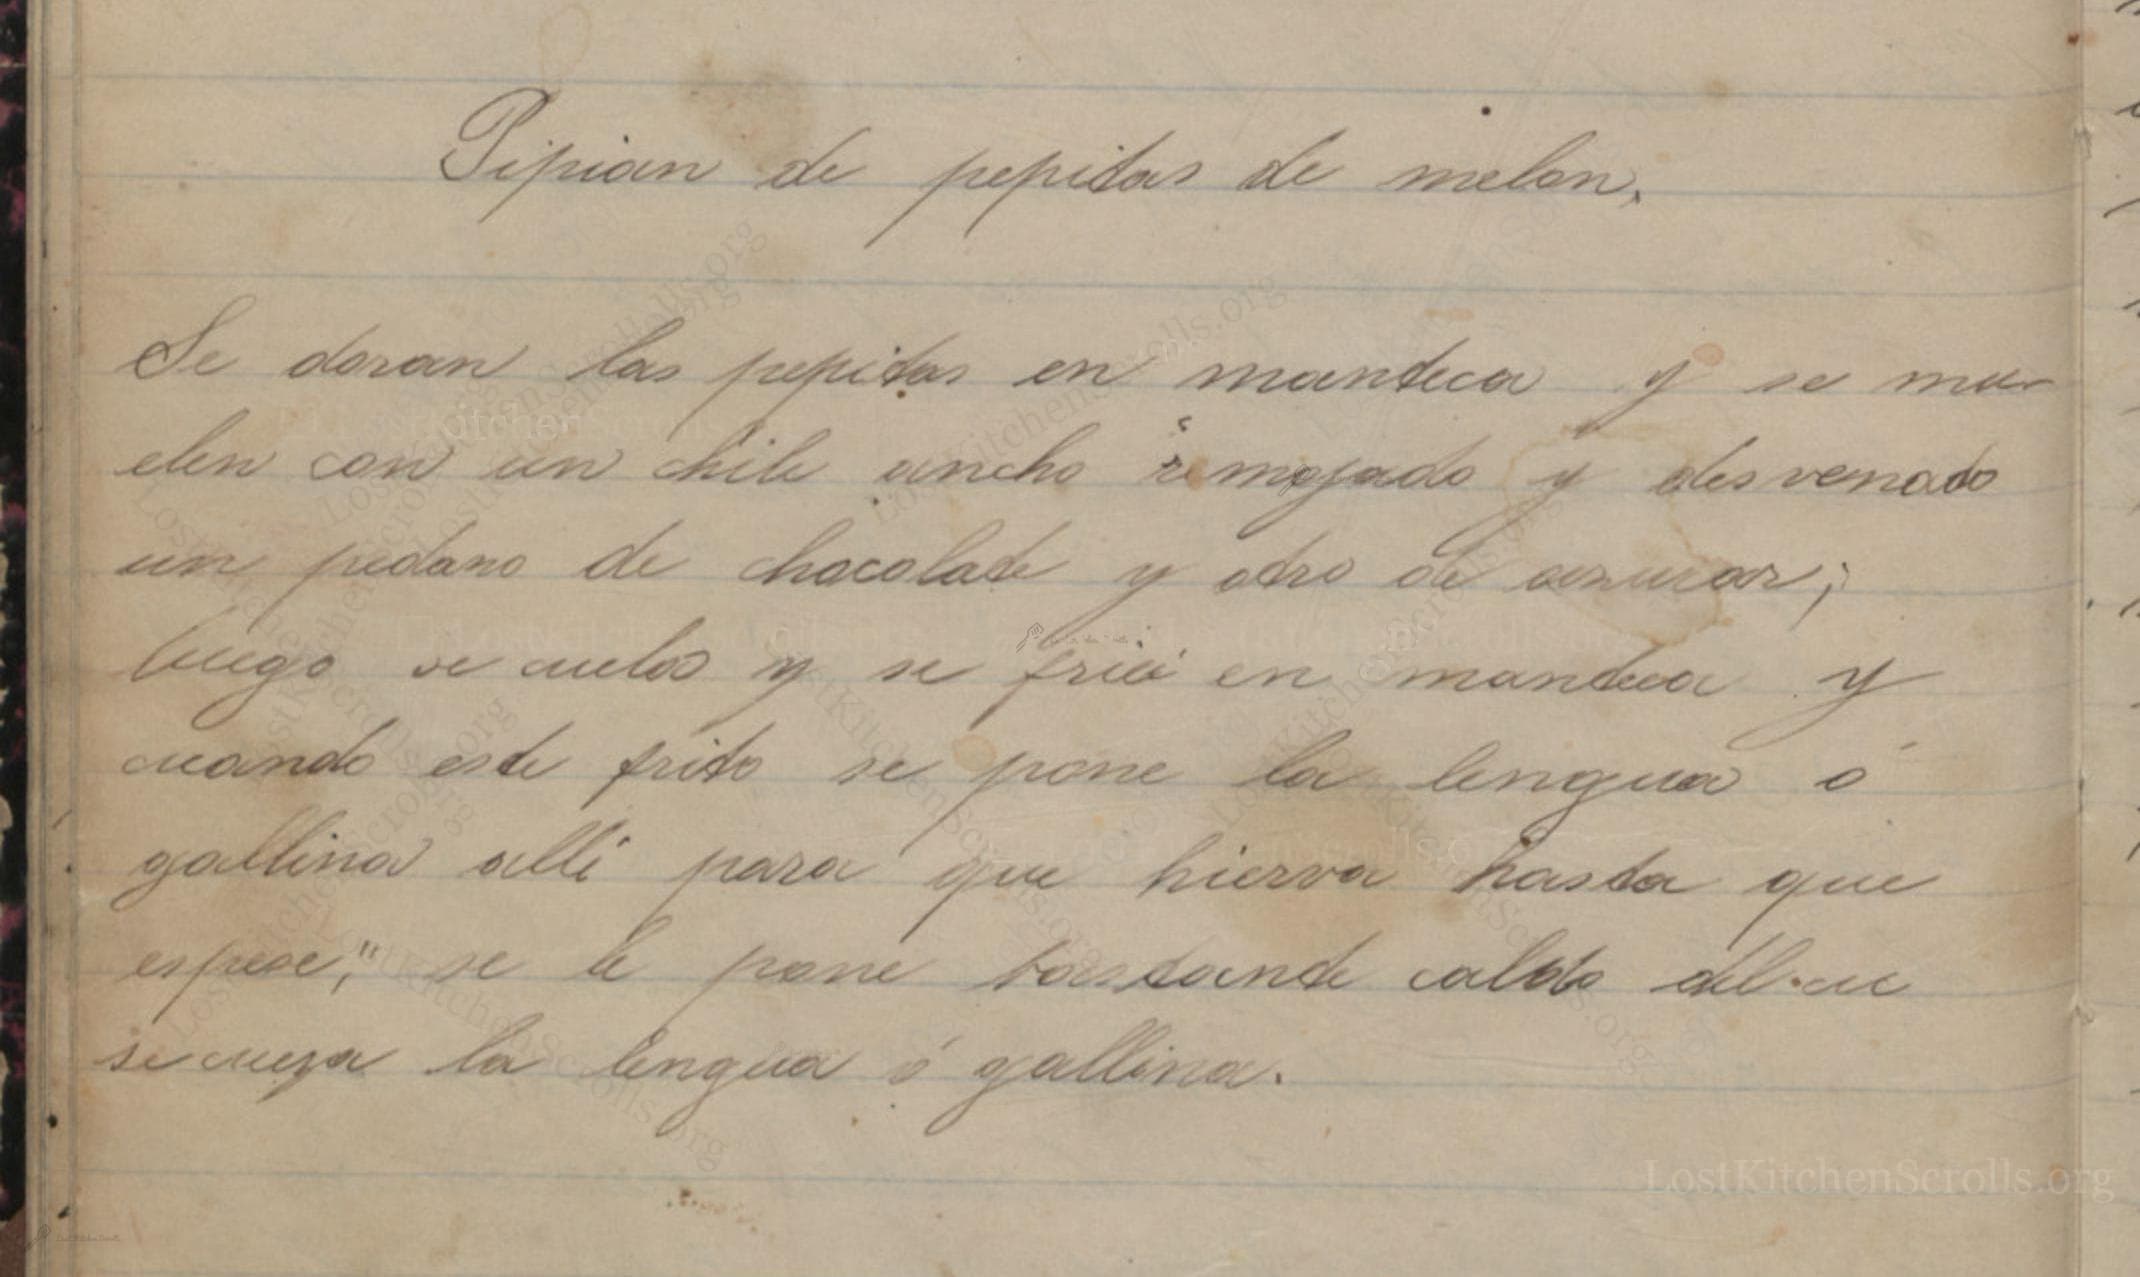 Pipian de pepitas de melon.
Se doran las pepitas en manteca y se mu-
elen con un chile ancho remojado y desvenado
un pedaso de chocolate y otro de asucar;
luego se cuela y se frie en manteca y
cuando este frito se pone la lengua ó
gallina alli para que hierva hasta que
espese; se le pone bastante caldo del cu
se cueza la lengua ó gallina.
LostKitchenScrolls.org